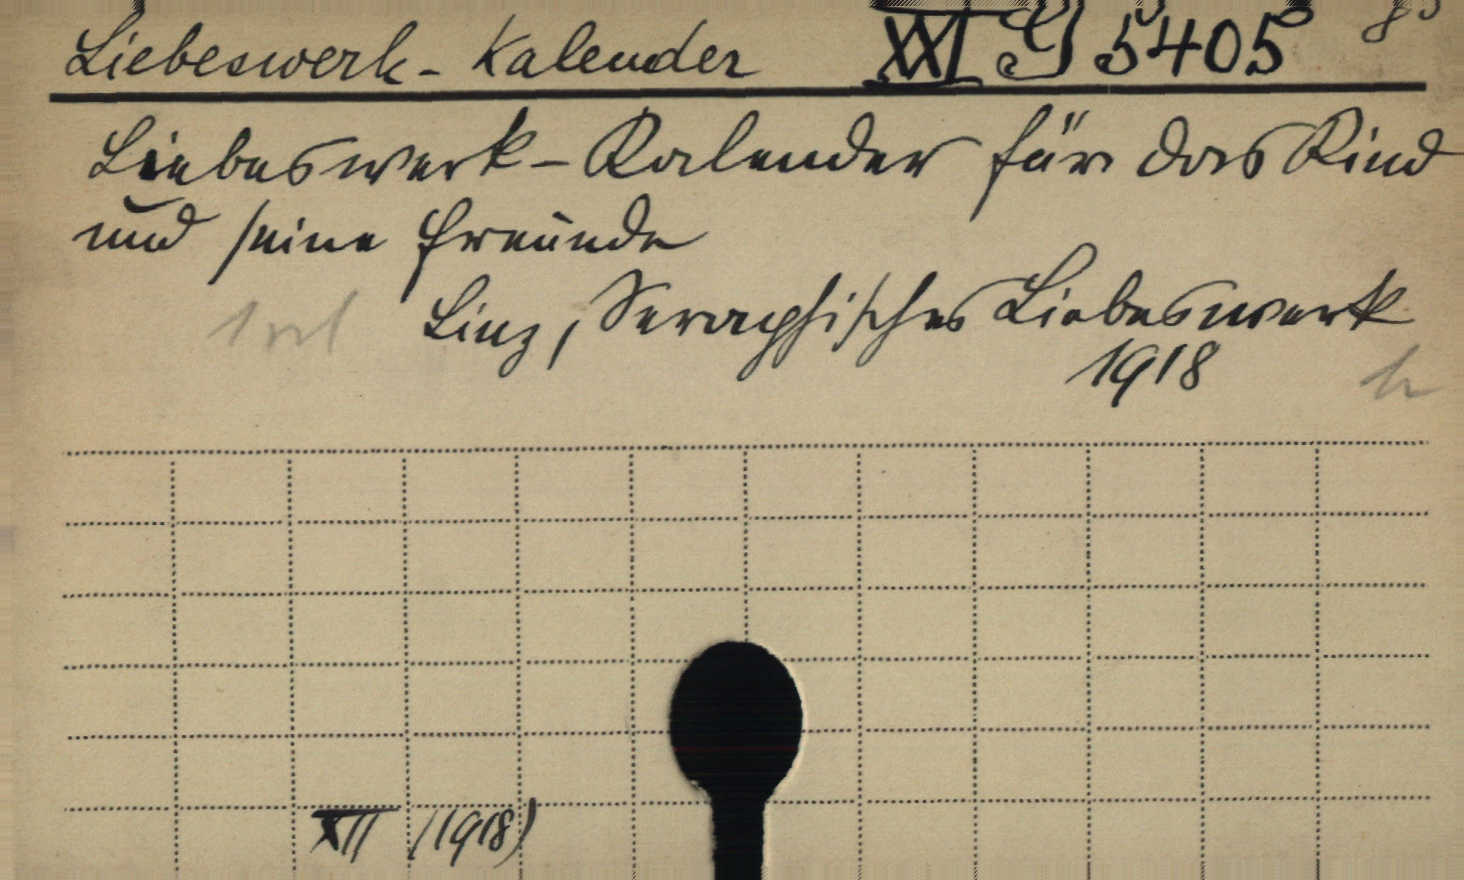 Liebeswerk-Kalender XXI G 5405 8°
Liebeswerk-Kalender für das Kind
und seine Freunde
Linz, Seraphisches Liebeswerk
1918
XII (1918)